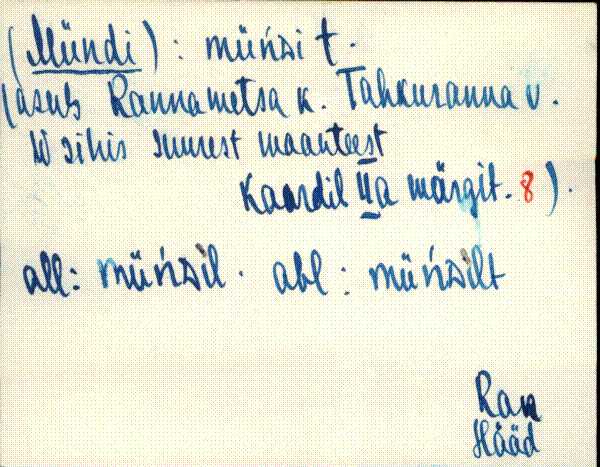 (Mündi): müńsi t.
(asub Rannametsa k. Tahkuranna v.
W sihis suurest maanteest
Kaardil IIa märgit. 8).
all: müńsil. abl: müńsilt
Ran
Hääd